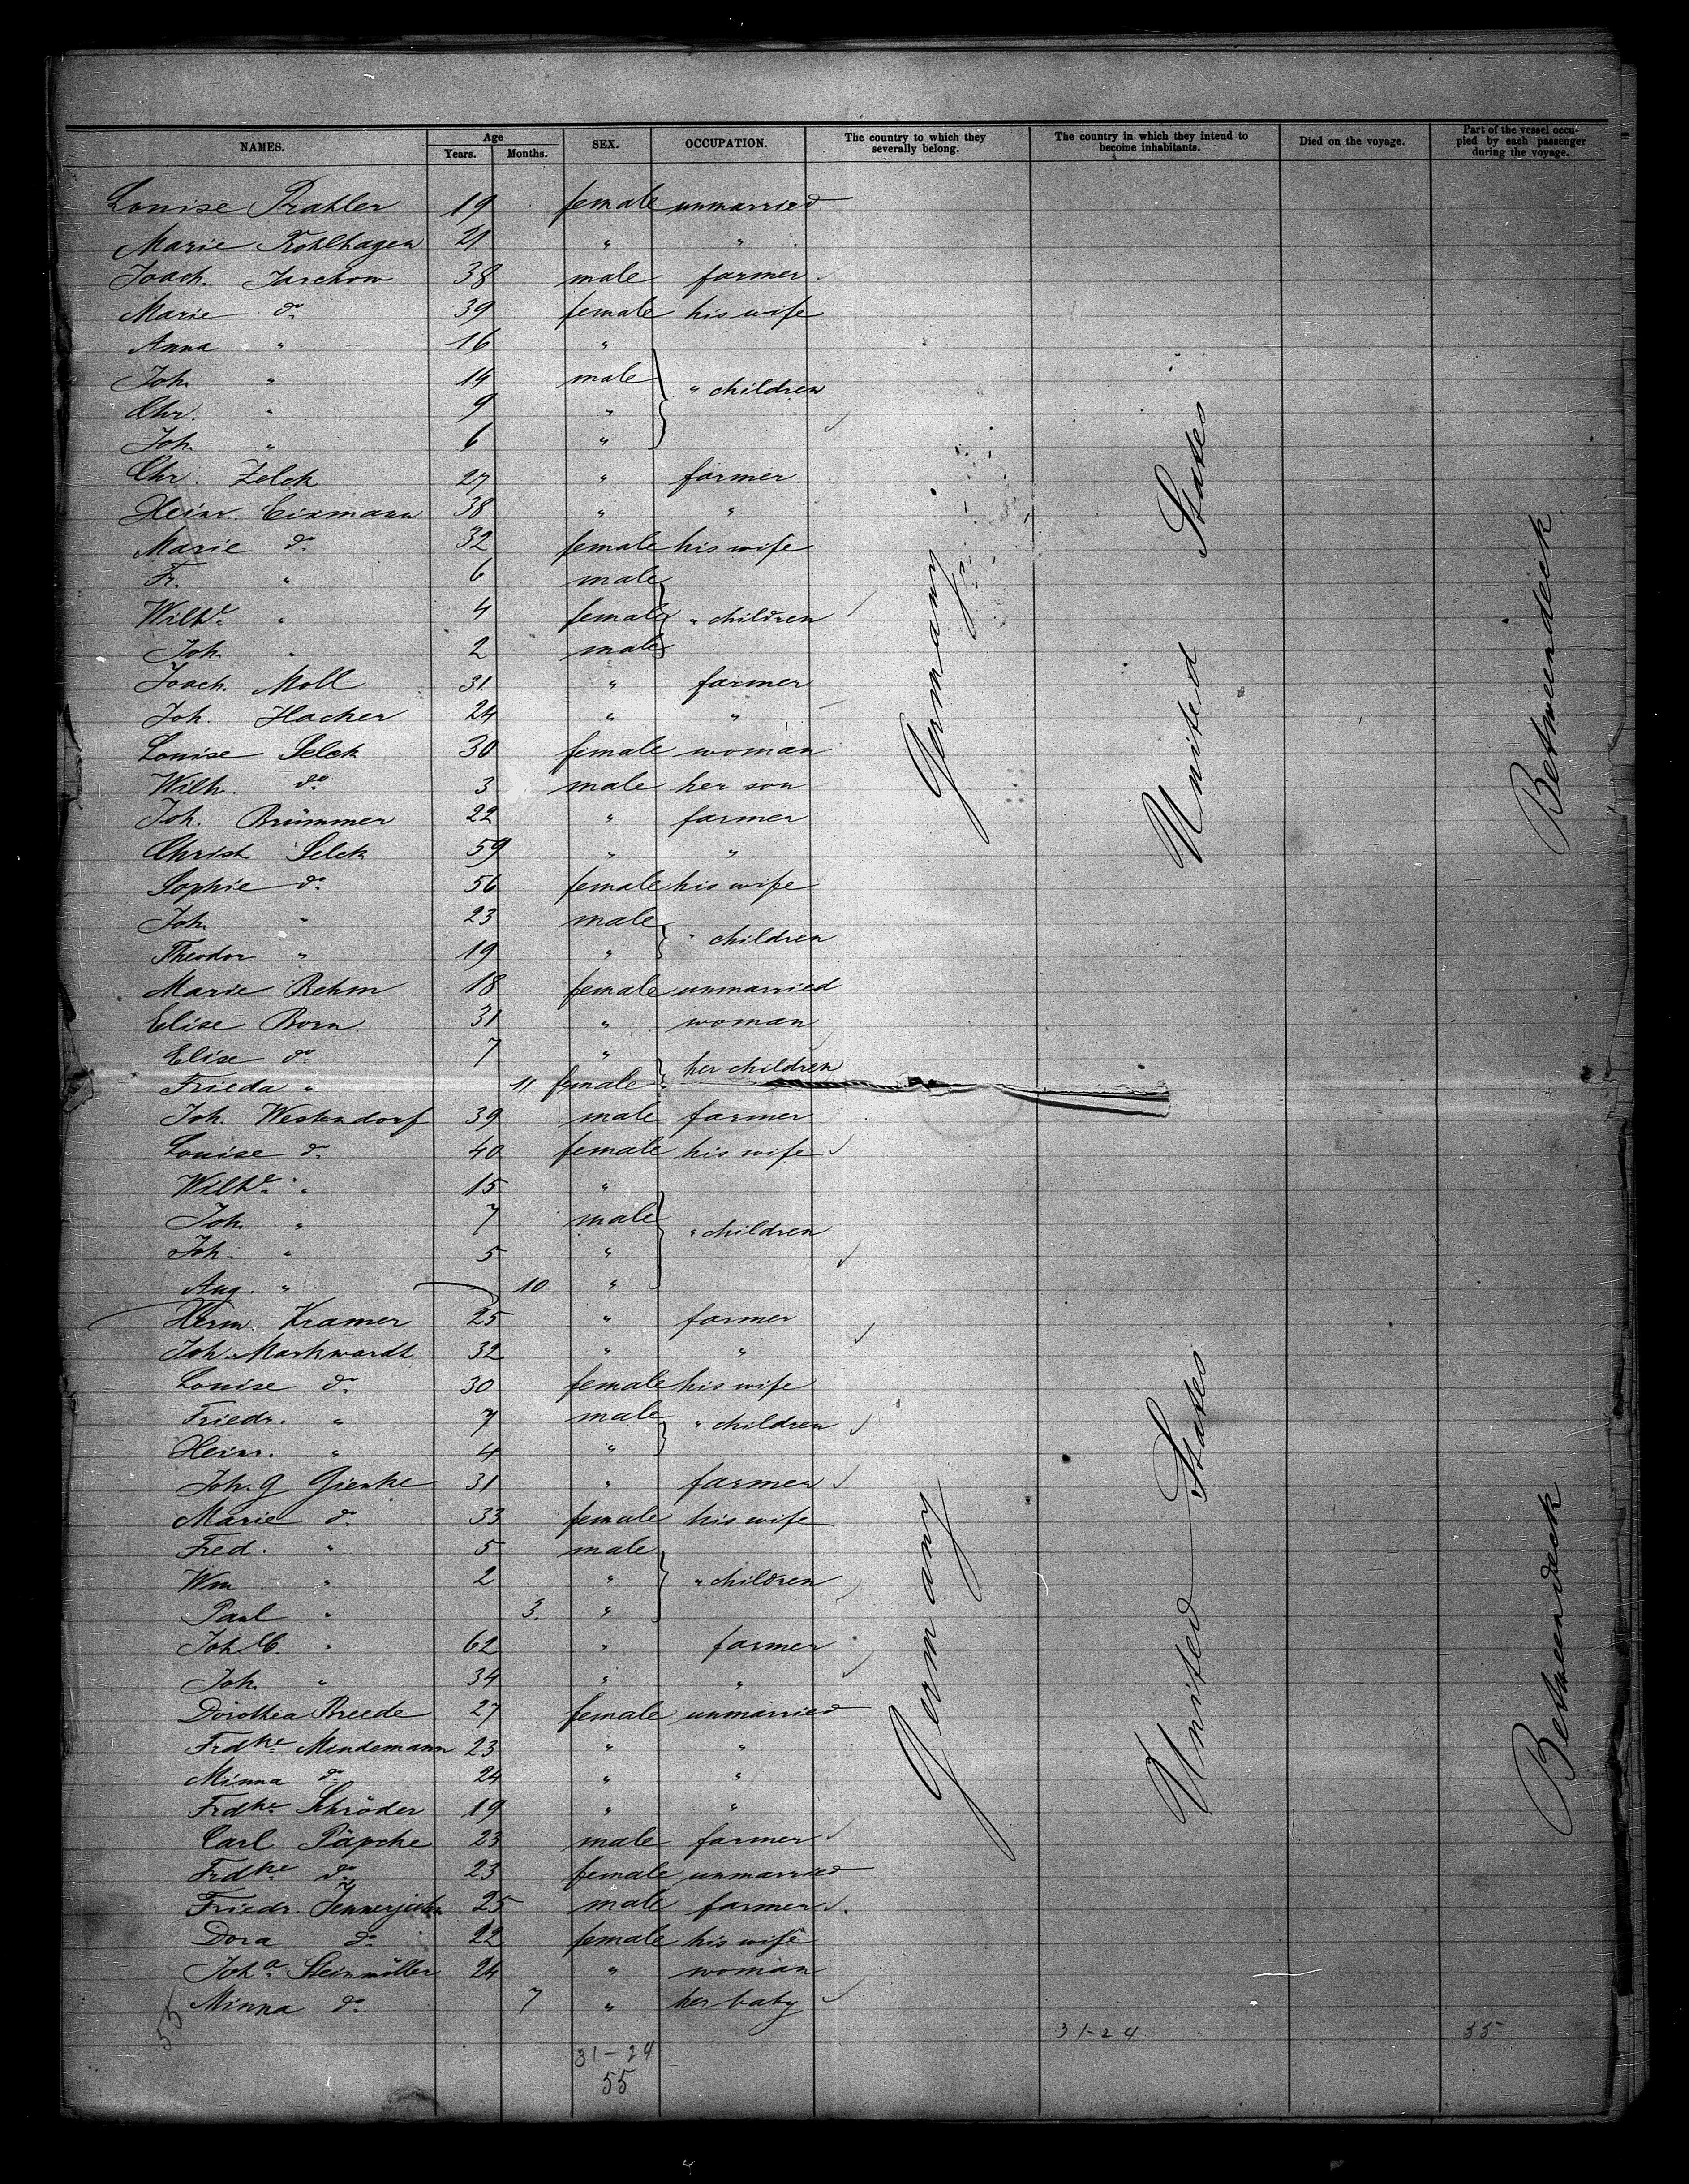 NAMES. Age Years. Months. SEX. OCCUPATION. The country to which they severally belong. The country in which they intend to become inhabitants. Died on the voyage. Part of the vessel occupied by each passenger during the voyage.
Louise Prahler 19 female unmarried
Marie Kohlhagen 21 " "
Joach. Jarchow 38 male farmer
Marie do. 39 female his wife
Anna " 16 "
Joh. " 14 male " children
Chr. " 9 "
Joh. " 6 "
Chr. Zelck 27 " farmer
Heinr. Eixmann 38 " "
Marie do. 32 female his wife
Fr. " 6 male
Wilhe. " 4 female " children
Joh. " 2 male
Joach. Moll 31 " farmer
Joh. Hacker 24 " "
Louise Selck 30 female woman
Wilh. do. 3 male her son
Joh. Brümmer 22 " farmer
Christ. Selck 59 " "
Sophie do. 56 female his wife
Joh. " 23 male " children
Theodor " 19 "
Marie Rehm 18 female unmarried
Elise Born 31 " woman
Elise do. 7 " her children
Frieda " 11 female
Joh. Westendorf 39 male farmer
Louise do. 40 female his wife
Wilhe. " 15 "
Joh. " 7 male " children
Joh. " 5 "
Aug. " 10 "
Herm. Kramer 25 " farmer
Joh. Markwardt 32 " "
Louise do. 30 female his wife
Friedr. " 7 male " children
Heinr. " 4 "
Joh. G Gienke 31 " farmer
Marie do. 33 female his wife
Fred. " 5 male
Wm " 2 " " children
Paul " 3. "
Joh. C. " 62 " farmer
Joh. " 34 " "
Dorothea Breede 27 female unmarried
Frdke. Mindemann 23 " "
Minna do. 24 " "
Frdke. Schröder 19 " "
Carl Päpcke 23 male farmer
Frdke. do. 23 female unmarried
Friedr. Jennerjahn 25 male farmer
Dora do. 22 female his wife
Joha. Steinmöller 24 " woman
Minna do. 7 " her baby
Germany United States Betweendeck
Germany United States Betweendeck
55
31-24 55
31-24
55